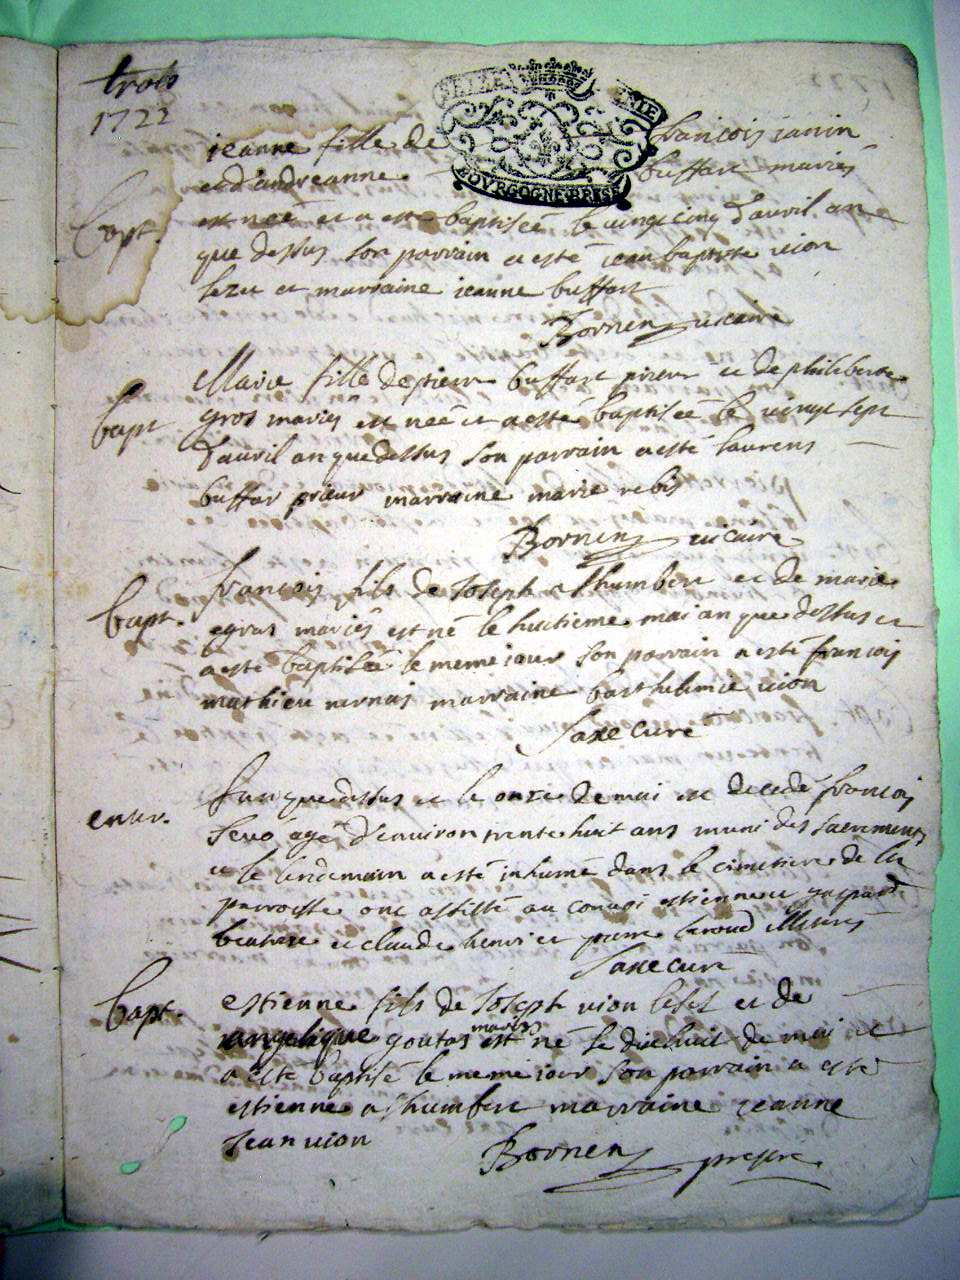 trois
1722
GENERALITE
BOVRGOGNE BRESSE
jeanne fille de francois janin
et d'andreanne buffart mariés
Bapt.
est née et a esté baptisée le vingt cinq d'avril an
que dessus son parrain a esté jean baptiste vion
et marraine jeanne buffart
Bornen vicaire
Bapt
Marie fille de pierre buffart prieur et de philiberte
gros mariés est née et a esté baptisée le vingt sept
d'avril an que dessus son parrain a esté laurens
buffar prieur marraine marie rebis
Bornen vicaire
Bapt.
francois fils de Joseph a lhumbert et de marie
egras mariés est né le huitieme mai an que dessus et
a esté baptisée le meme jour son parrain a esté francois
mathieu marraine barthelemie vion
Saxe curé
enter.
l'an que dessus et le onze de mai est decedé francois
agé d'environ trente huit ans muni des sacrements
et le lendemain a esté inhumé dans le cimetiere de la
parroisse ont assisté au convoi estienne et gaspard
et claude henri et pierre illiterés
Saxe curé
Bapt.
estienne fils de Joseph vion et de
angelique goutas mariés est né le dixhuit de mai et
a esté baptisé le meme jour son parrain a esté
estienne a lhumbert marraine jeanne
Jean vion
Bornen prestre